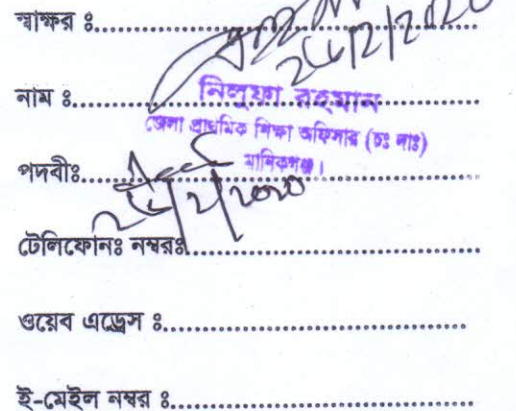 স্বাক্ষর ঃ..................................
নাম ঃ..................................
নিলুফা রহমান
জেলা প্রাথমিক শিক্ষা অফিসার (চঃ দাঃ)
মানিকগঞ্জ।
পদবীঃ..................................
টেলিফোনঃ নম্বরঃ..................................
ওয়েব এড্রেস ঃ..................................
ই-মেইল নম্বর ঃ..................................